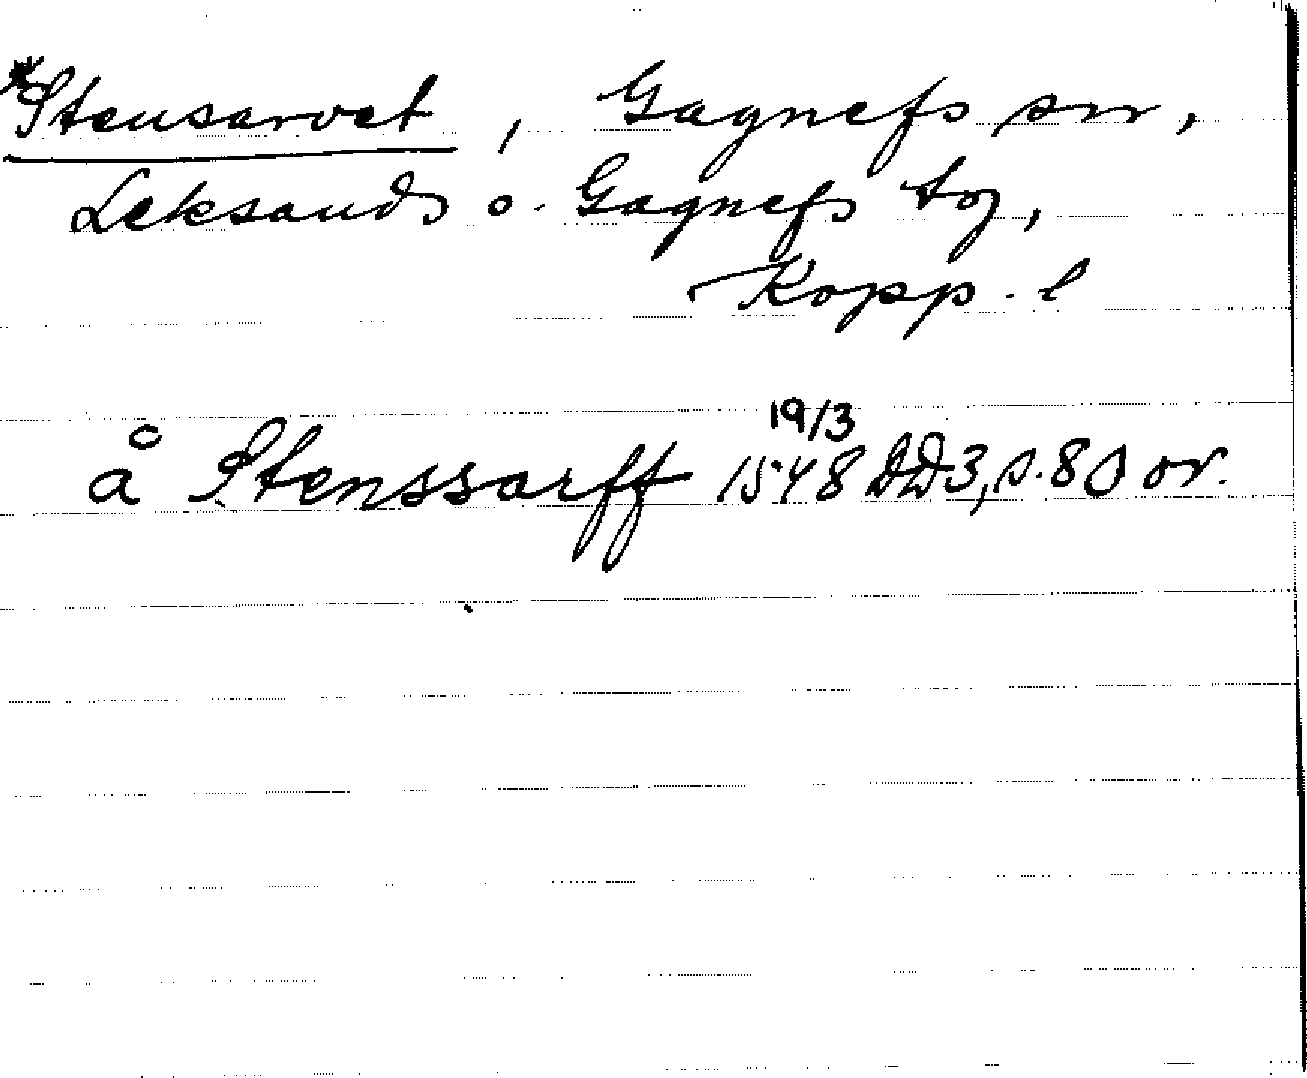 *Stensarvet, Gagnefs sn,
Leksands o. Gagnefs tg,
Kopp. l
å Stenssarff 19/3 1548 DD3, s. 80 or.